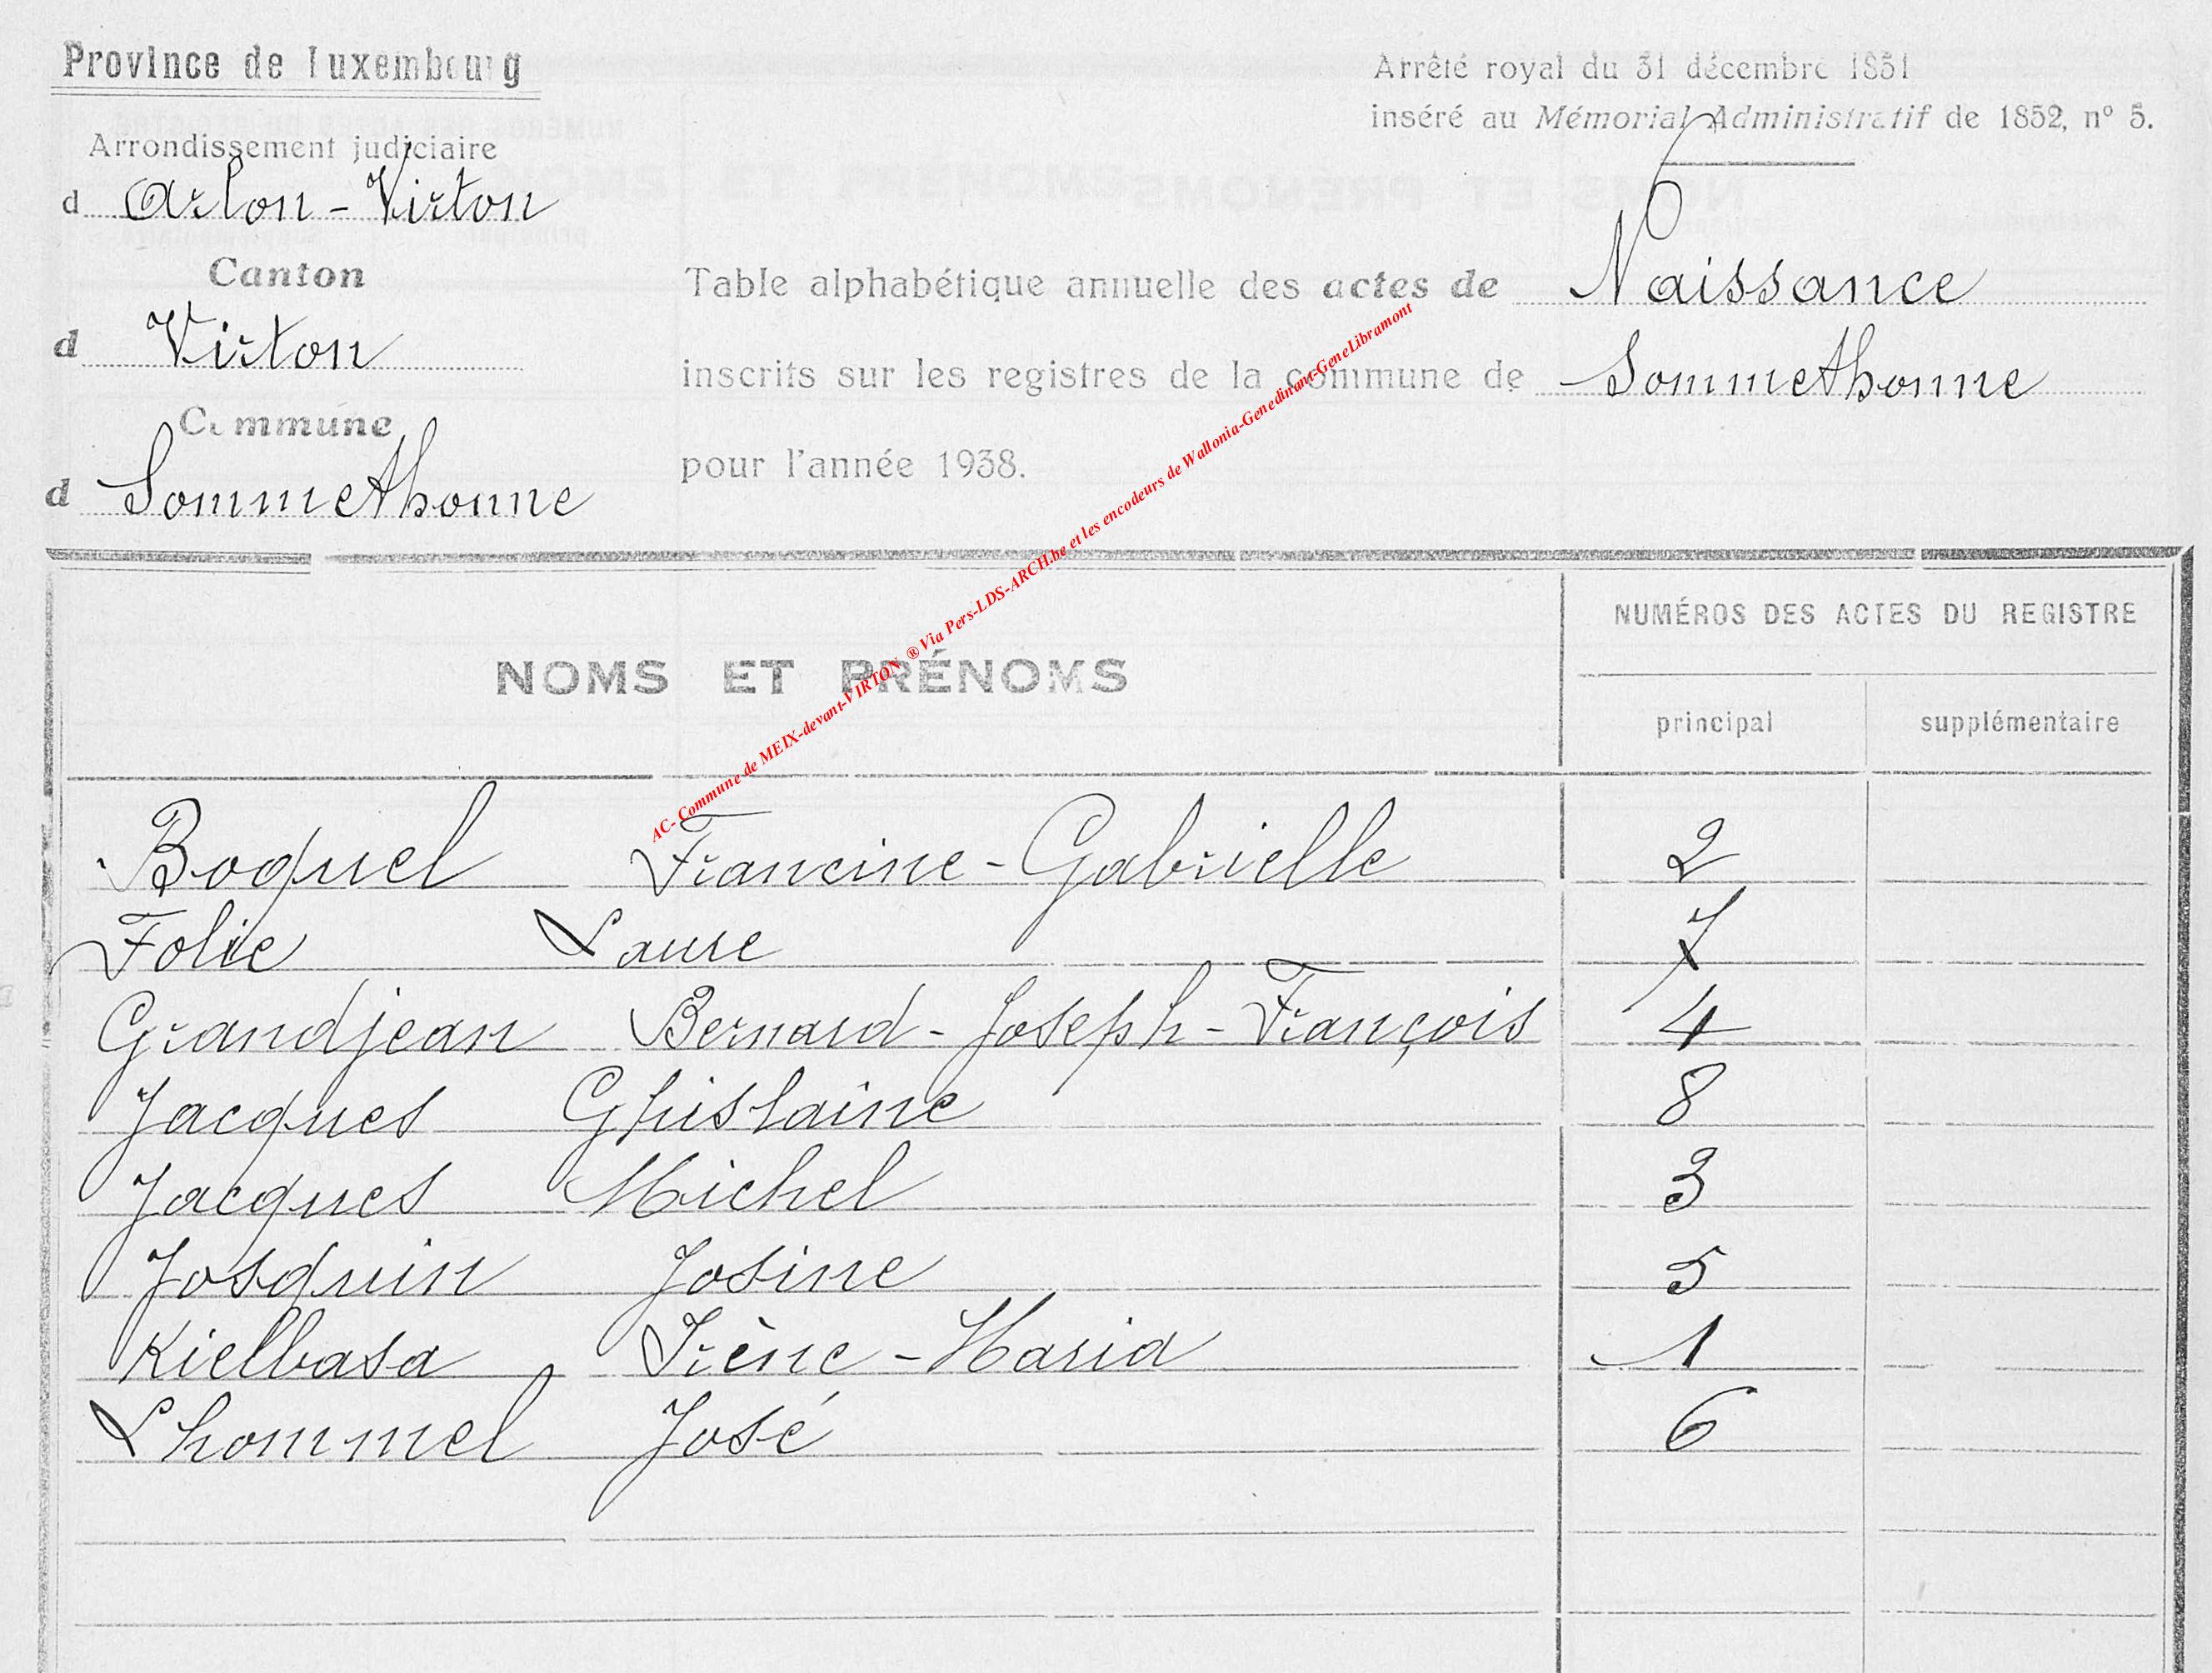 Province de Luxembourg
Arrêté royal du 31 décembre 1851
inséré au Mémorial Administratif de 1852, nº 5.
Arrondissement judiciaire
d Arlon - Virton
Canton
d Virton
Commune
d Sommethonne
Table alphabétique annuelle des actes de Naissance
inscrits sur les registres de la commune de Sommethonne
pour l'année 1938.
AC- Commune de MEIX-devant-VIRTON ® Via Pers-LDS-ARCH.be et les encodeurs de Wallonia-Genedinant-GeneLibramont
NOMS ET PRÉNOMS
NUMÉROS DES ACTES DU REGISTRE
principal supplémentaire
Boquel Francine - Gabrielle 2
Folie Laure 7
Grandjean Bernard - Joseph - François 4
Jacques Ghislaine 8
Jacques Michel 3
Josquin Josine 5
Kielbasa Irène - Maria 1
Lhommel José 6